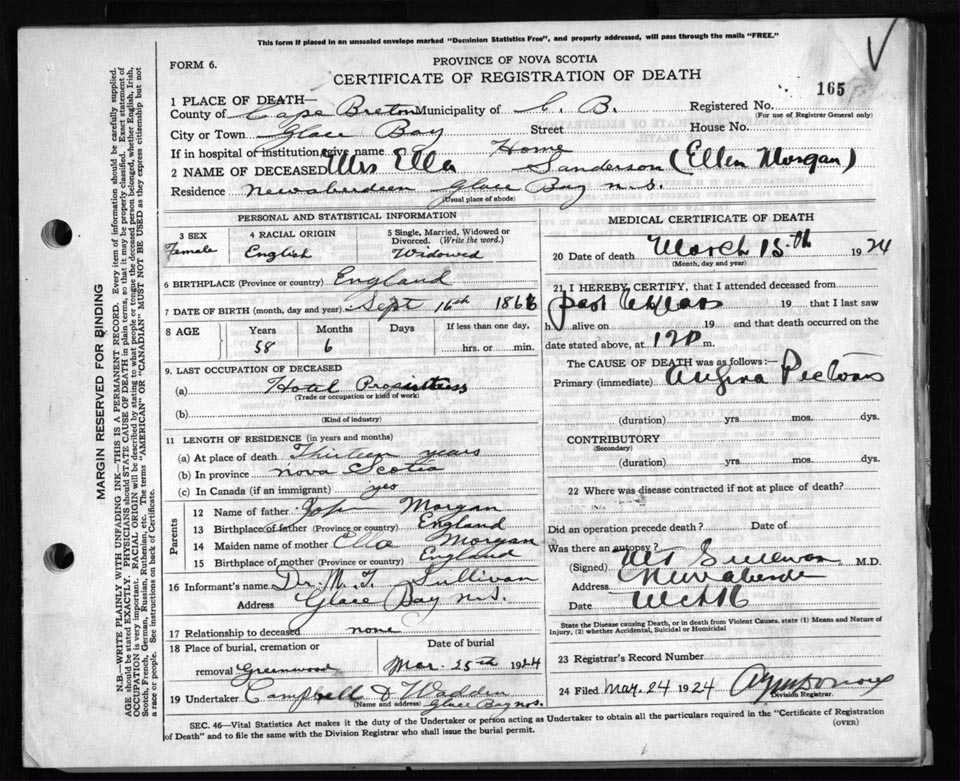 This form if placed in an unsealed envelope marked "Dominion Statistics Free", and properly addressed, will pass through the mails "FREE."
FORM 6.
PROVINCE OF NOVA SCOTIA
CERTIFICATE OF REGISTRATION OF DEATH
165
1 PLACE OF DEATH—
County of Cape Breton Municipality of C. B. Registered No.
(For use of Registrar General only)
City or Town Glace Bay Street House No.
If in hospital or institution give name Home
2 NAME OF DECEASED Mrs Ella Sanderson (Ellen Morgan)
Residence Newaberdeen Glace Bay N.S.
(Usual place of abode)
PERSONAL AND STATISTICAL INFORMATION
3 SEX 4 RACIAL ORIGIN 5 Single, Married, Widowed or
Divorced. (Write the word.)
Female English Widowed
6 BIRTHPLACE (Province or country) England
7 DATE OF BIRTH (month, day and year) Sept 16th 1866
8 AGE Years Months Days If less than one day,
58 6 hrs. or min.
9 LAST OCCUPATION OF DECEASED
(a) Hotel
(Trade or occupation or kind of work)
(b)
(Kind of industry)
11 LENGTH OF RESIDENCE (in years and months)
(a) At place of death Thirteen years
(b) In province Nova Scotia
(c) In Canada (if an immigrant) yes
Parents
12 Name of father John Morgan
13 Birthplace of father (Province or country) England
14 Maiden name of mother Ella Morgan
15 Birthplace of mother (Province or country) England
16 Informant's name Dr. M. T. Sullivan
Address Glace Bay N.S.
17 Relationship to deceased none
18 Place of burial, cremation or Date of burial
removal Greenwood Mar. 25th 1924
19 Undertaker Campbell & Wadden
(Name and address) Glace Bay N.S.
MEDICAL CERTIFICATE OF DEATH
20 Date of death March 15th 1924
(Month, day and year)
21 I HEREBY CERTIFY, that I attended deceased from
past 19 that I last saw
h alive on 19 and that death occurred on the
date stated above, at m.
The CAUSE OF DEATH was as follows:—
Primary (immediate) Angina Pectoris
(duration) yrs. mos. dys.
CONTRIBUTORY
(Secondary)
(duration) yrs. mos. dys.
22 Where was disease contracted if not at place of death?
Did an operation precede death? Date of
Was there an autopsy?
(Signed) Sullivan M.D.
Address Newaberdeen
Date
State the Disease causing Death, or in death from Violent Causes, state (1) Means and Nature of
Injury, (2) whether Accidental, Suicidal or Homicidal
23 Registrar's Record Number
24 Filed Mar. 24 1924
Division Registrar.
SEC. 46—Vital Statistics Act makes it the duty of the Undertaker or person acting as Undertaker to obtain all the particulars required in the "Certificate of Registration
of Death" and to file the same with the Division Registrar who shall issue the burial permit.
(OVER)
MARGIN RESERVED FOR BINDING
N.B.—WRITE PLAINLY WITH UNFADING INK—THIS IS A PERMANENT RECORD. Every item of information should be carefully supplied.
AGE should be stated EXACTLY. PHYSICIANS should STATE CAUSE OF DEATH in plain terms, so that it may be properly classified. Exact statement of
OCCUPATION is very important. RACIAL ORIGIN will be described by stating to what people or tongue the deceased person belonged, whether English, Irish,
Scotch, French, German, Russian, Ruthenian, etc. The terms "AMERICAN" or "CANADIAN" MUST NOT BE USED as they express citizenship but not
a race or people. See instructions on back of Certificate.